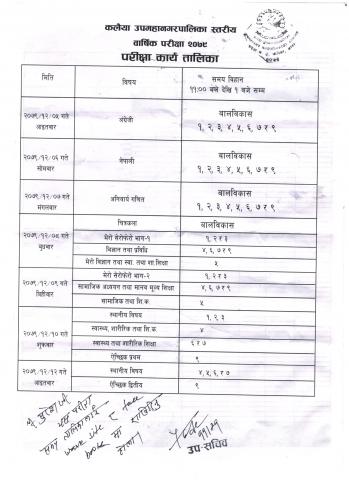 कलैया उपमहानगरपालिका स्तरीय
वार्षिक परीक्षा २०७९
परीक्षा कार्य तालिका
मिति
विषय
समय बिहान
११:०० बजे देखि १ बजे सम्म
२०७९/१२/०५ गते
आइतबार
अंग्रेजी
बालविकास
१, २, ३, ४, ५, ६, ७ र ९
२०७९/१२/०६ गते
सोमबार
नेपाली
बालविकास
१, २, ३, ४, ५, ६, ७ र ९
२०७९/१२/०७ गते
मंगलबार
अनिवार्य गणित
बालविकास
१, २, ३, ४, ५, ६, ७ र ९
चित्रकला
बालविकास
२०७९/१२/०८ गते
बुधबार
मेरो सेरोफेरो भाग-१
१, २ र ३
विज्ञान तथा प्रविधि
४, ६, ७ र ९
मेरो विज्ञान तथा स्वा. तथा शा.शिक्षा
५
२०७९/१२/०९ गते
बिहिबार
मेरो सेरोफेरो भाग-२
१, २ र ३
सामाजिक अध्ययन तथा मानव मूल्य शिक्षा
४, ६, ७ र ९
सामाजिक तथा सि.क.
५
२०७९/१२/१० गते
शुक्रबार
स्थानीय विषय
१, २, ३
स्वास्थ्य, शारीरिक तथा सि.क.
४
स्वास्थ्य तथा शारीरिक शिक्षा
६ र ७
ऐच्छिक प्रथम
९
२०७९/१२/१२ गते
आइतबार
स्थानीय विषय
४, ५, ६, र ७
ऐच्छिक द्वितीय
९
उप-सचिव